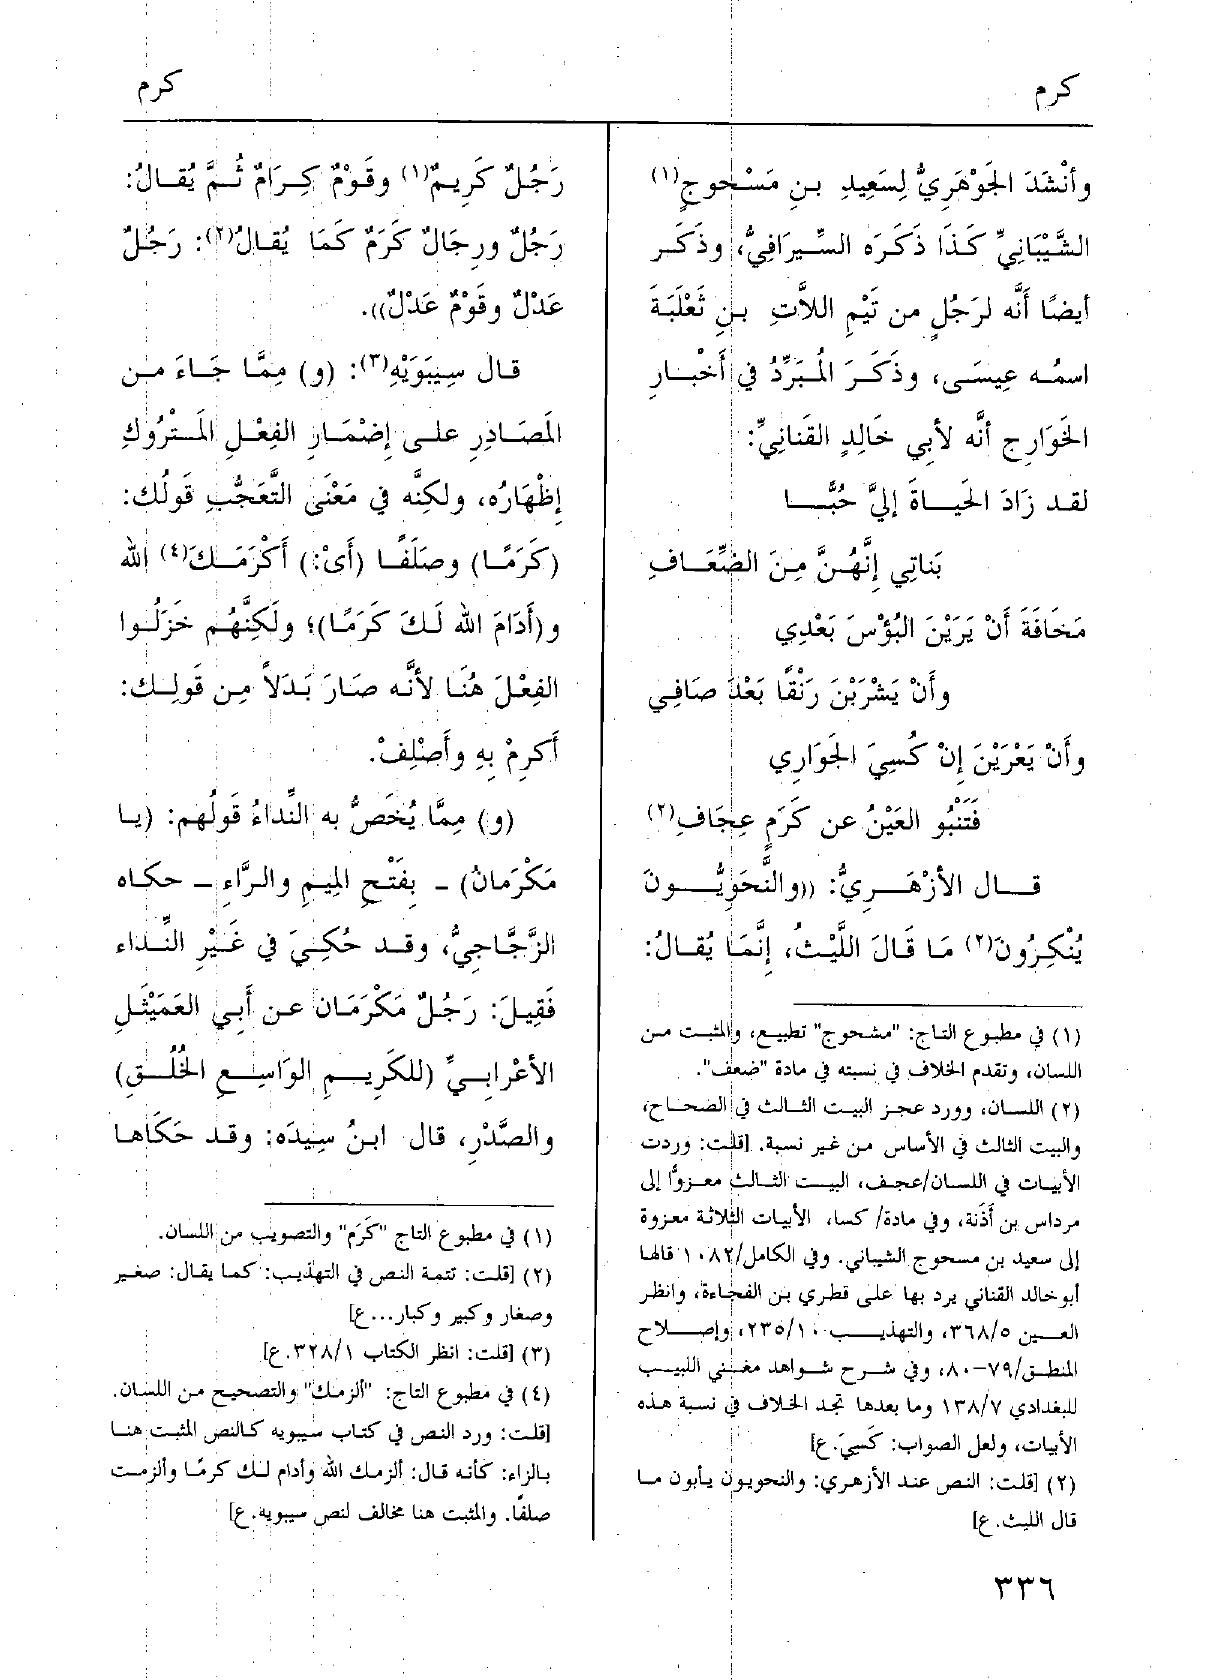 كرم
كرم
وأنْشَدَ الجَوْهَرِيُّ لِسَعِيدِ بنِ مَسْحوجٍ(١)
الشَّيْبَانِيِّ كَذَا ذَكَرَه السِّيرَافِيُّ، وذَكَر
أيضًا أنَّه لرَجُلٍ من تَيْمِ اللاَّتِ بنِ ثَعْلَبَةَ
اسمُه عِيسَى، وذَكَرَ المُبَرِّدُ في أَخْبارِ
الخَوَارِجِ أنَّه لأبي خَالِدٍ القَنانِيِّ:
لقد زَادَ الحَيـاةَ إليَّ حُبًّـا
بَناتِي إنَّهُنَّ مِنَ الضِّعَـافِ
مَخَافَةَ أنْ يَرَيْنَ البُؤْسَ بَعْدِي
وأنْ يَشْرَبْنَ رَنْقًا بَعْدَ صَافِي
وأنْ يَعْرَيْنَ إنْ كُسِيَ الجَوَارِي
فَتَنْبُو العَيْنُ عن كَرَمٍ عِجَافِ(٢)
قـال الأزْهَـرِيُّ: ((والنَّحَوِيُّـونَ
يُنْكِرُونَ(٢) مَا قَالَ اللَّيْثُ، إنَّمَا يُقَالُ:
(١) في مطبوع التاج: "مشحوج" تطبيع، والمثبت من
اللسان، وتقدم الخلاف في نسبته في مادة "ضعف".
(٢) اللسان، وورد عجز البيت الثالث في الصحاح،
والبيت الثالث في الأساس من غير نسبة. [قلت: وردت
الأبيات في اللسان/عجف، البيت الثالث معزوًّا إلى
مرداس بن أذَنَة، وفي مادة/ كسا، الأبيات الثلاثة معزوة
إلى سعيد بن مسحوج الشيباني. وفي الكامل/١٠٨٢ قالها
أبوخالد القناني يرد بها على قطري بن الفجاءة، وانظر
العين ٣٦٨/٥، والتهذيب ٢٣٥/١٠، وإصلاح
المنطق/٧٩-٨٠، وفي شرح شواهد مغني اللبيب
للبغدادي ١٣٨/٧ وما بعدها تجد الخلاف في نسبة هذه
الأبيات، ولعل الصواب: كَسِيَ. ع]
(٢) [قلت: النص عند الأزهري: والنحويون يأبون ما
قال الليث. ع]
رَجُلٌ كَرِيمٌ(١) وقَوْمٌ كِرَامٌ ثُمَّ يُقَالُ:
رَجُلٌ ورِجَالٌ كَرَمٌ كَمَا يُقَالُ(٢): رَجُلٌ
عَدْلٌ وقَوْمٌ عَدْلٌ)).
قال سِيبَوَيْهِ(٣): (و) مِمَّا جَاءَ مـن
المَصَادِرِ على إضْمَارِ الفِعْلِ المَتْرُوكِ
إظْهَارُه، ولكِنَّه في مَعْنَى التَّعَجُّبِ قَولُك:
(كَرَمًا) وصَلَفًا (أيْ:) أَكْرَمَـكَ(٤) الله
و(أدَامَ الله لَـكَ كَرَمًا)؛ ولَكِنَّهُم خَزَلُوا
الفِعْلَ هُنَا لأنَّه صَارَ بَدَلاً مِن قَولِك:
أَكرِمْ بِهِ وأَصْلِفْ.
(و) مِمَّا يُخَصُّ به النِّداءُ قَولُهم: (يـا
مَكْرَمَانُ) - بِفَتْحِ المِيمِ والرَّاءِ - حكاه
الزَّجَّاجِيُّ، وقـد حُكِيَ في غَيْرِ النِّـداء
فَقِيلَ: رَجُلٌ مَكْرَمَان عن أَبِي العَمَيْثَلِ
الأعْرابيِّ (للكَرِيمِ الوَاسِعِ الخُلُقِ)
والصَّدْرِ، قال ابنُ سِيدَه: وقد حَكَاها
(١) في مطبوع التاج "كَرَم" والتصويب من اللسان.
(٢) [قلت: تتمة النص في التهذيب: كما يقال: صغير
وصغار وكبير وكبار...ع]
(٣) [قلت: انظر الكتاب ٣٢٨/١.ع]
(٤) في مطبوع التاج: "ألزمك" والتصحيح من اللسان.
[قلت: ورد النص في كتاب سيبويه كالنص المثبت هنا
بالزاء: كأنه قال: ألزمك الله وأدام لك كرمًا وألزمت
صلفًا. والمثبت هنا مخالف لنص سيبويه.ع]
٣٣٦